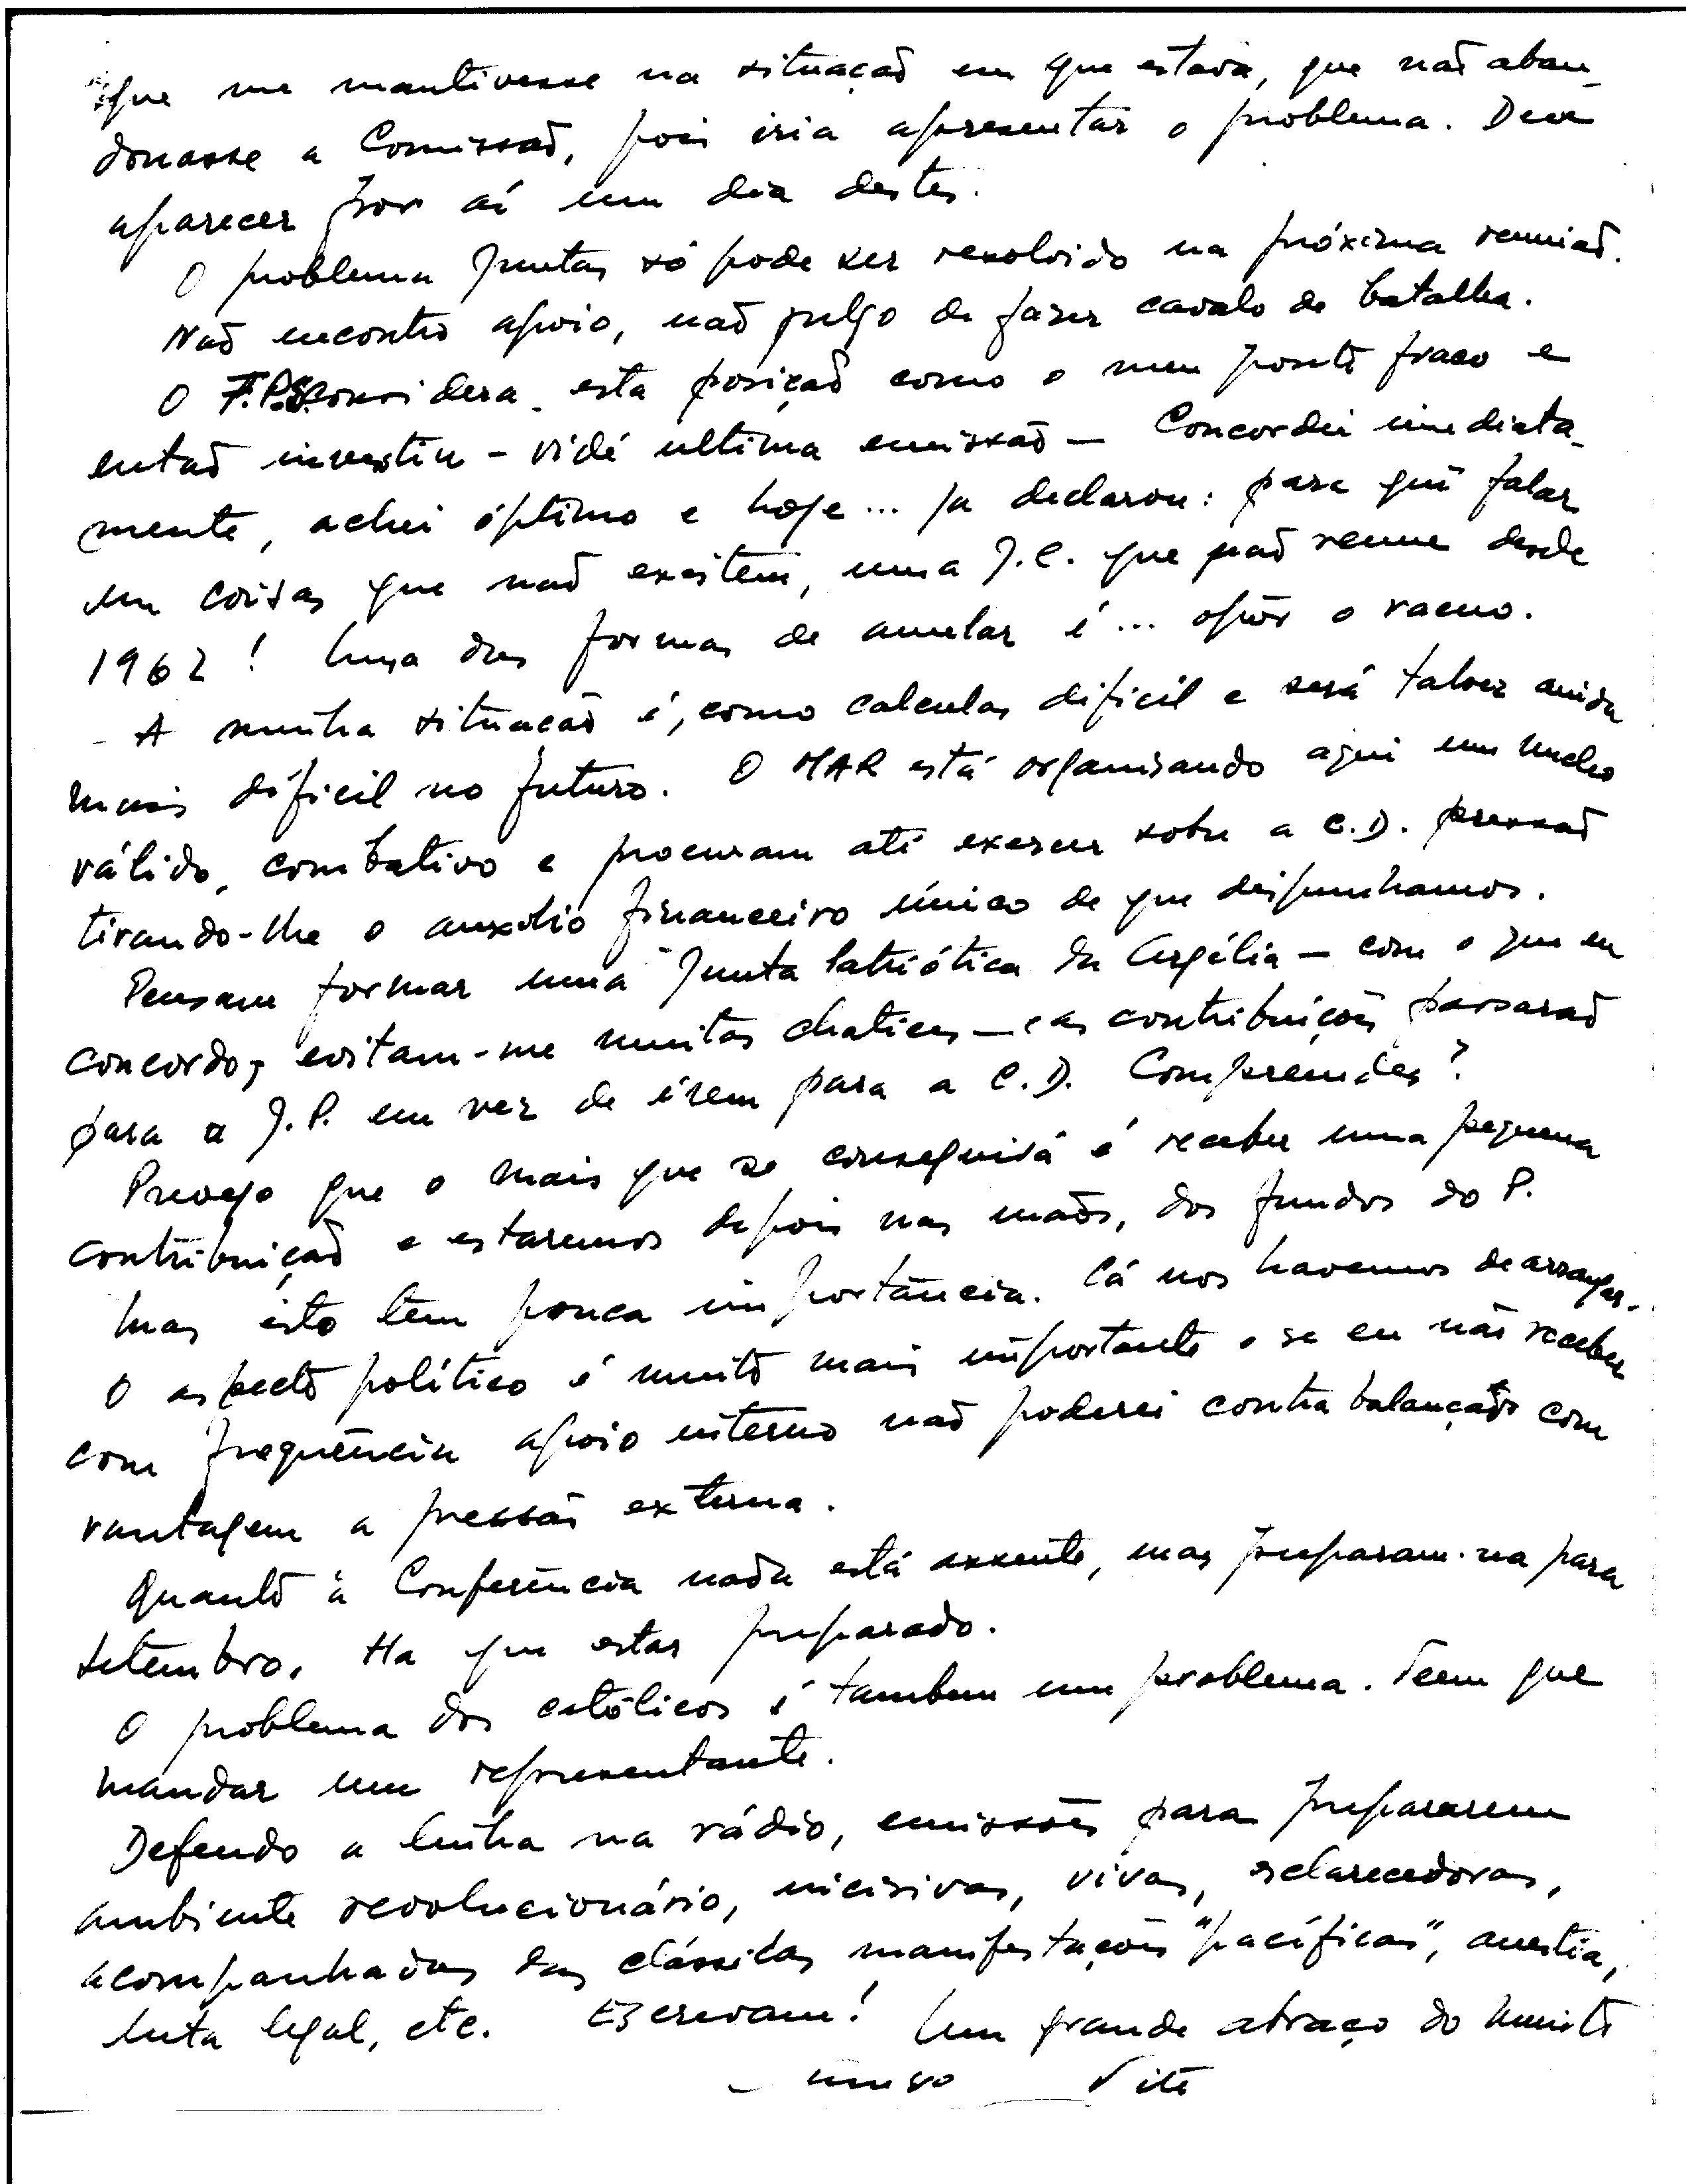 que me mantivesse na situação em que estava, que não aban-
donasse a Comissão, pois iria apresentar o problema. Deve
aparecer por aí um dia destes.
O problema Juntas só pode ser resolvido na próxima reunião.
Não encontro apoio, não julgo de fazer cavalo de batalha.
O F.P.S. considera esta posição como o meu ponto fraco e
então investiu - vidé ultima emissão - Concordei imediata-
mente, achei óptimo e hoje... ja declarou: para quê falar
em coisas que não existem, uma J.C. que não reune desde
1962! Uma das formas de anular é... opôr o vacuo.
- A minha situação é, como calculas dificil e será talvez ainda
mais dificil no futuro. O MAR está organisando aqui um nucleo
válido, combativo e procuram até exercer sobre a C.D. pressão
tirando-lhe o auxilio financeiro único de que dispunhamos.
Pensam formar uma Junta Patriótica da Argélia - com o que eu
concordo, evitam-me muitas chatices - e as contribuições passarão
para a J.P. em vez de irem para a C.D. Comprendes?
Prevejo que o mais que se conseguirá é receber uma pequena
contribuição e estaremos depois nas mãos, dos fundos do P.
Mas isto tem pouca importância. Cá nos havemos de arranjar.
O aspecto político é muito mais importante e se eu não receber
com frequência apoio interno não poderei contrabalançar com
vantagem a pressão externa.
Quanto à Conferência nada está assente, mas preparam-na para
Setembro. Ha que estar preparado.
O problema dos católicos é tambem um problema. Teem que
mandar um representante.
Defendo a linha na rádio, emissões para prepararem
ambiente revolucionário, incisivas, vivas, esclarecedoras,
acompanhadas das clássicas manifestações "pacíficas", anestia,
luta legal, etc. Escrevam! Um grande abraço do muito